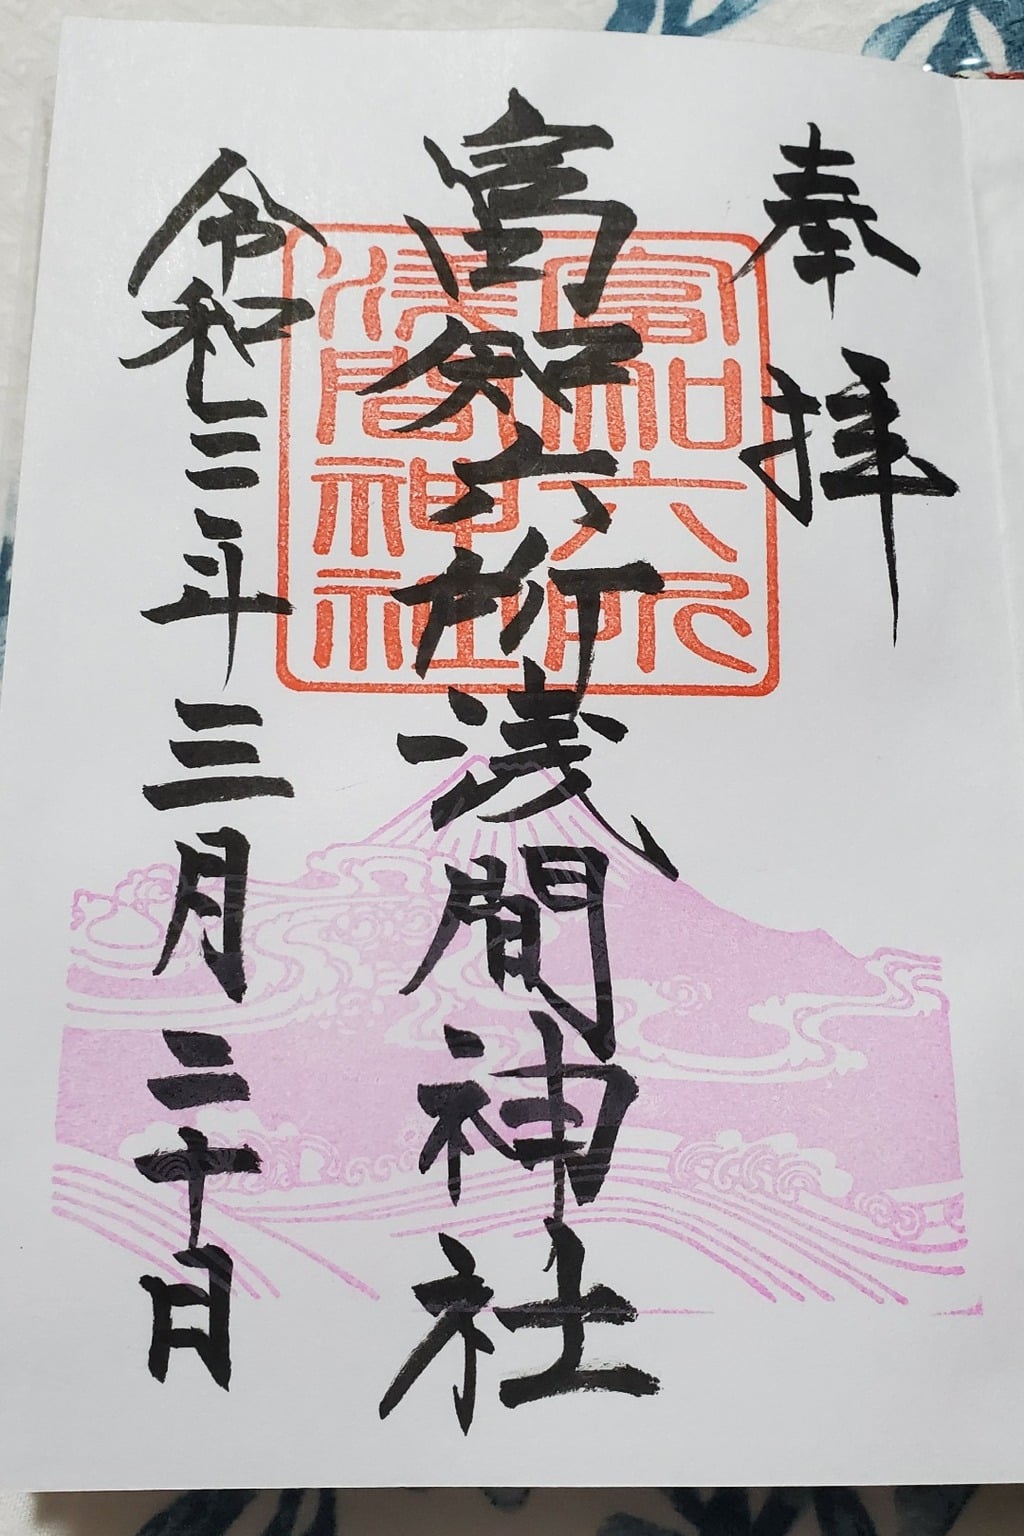 奉拝
富知六所浅間神社
令和三年三月二十日
富知六所
淺間神社